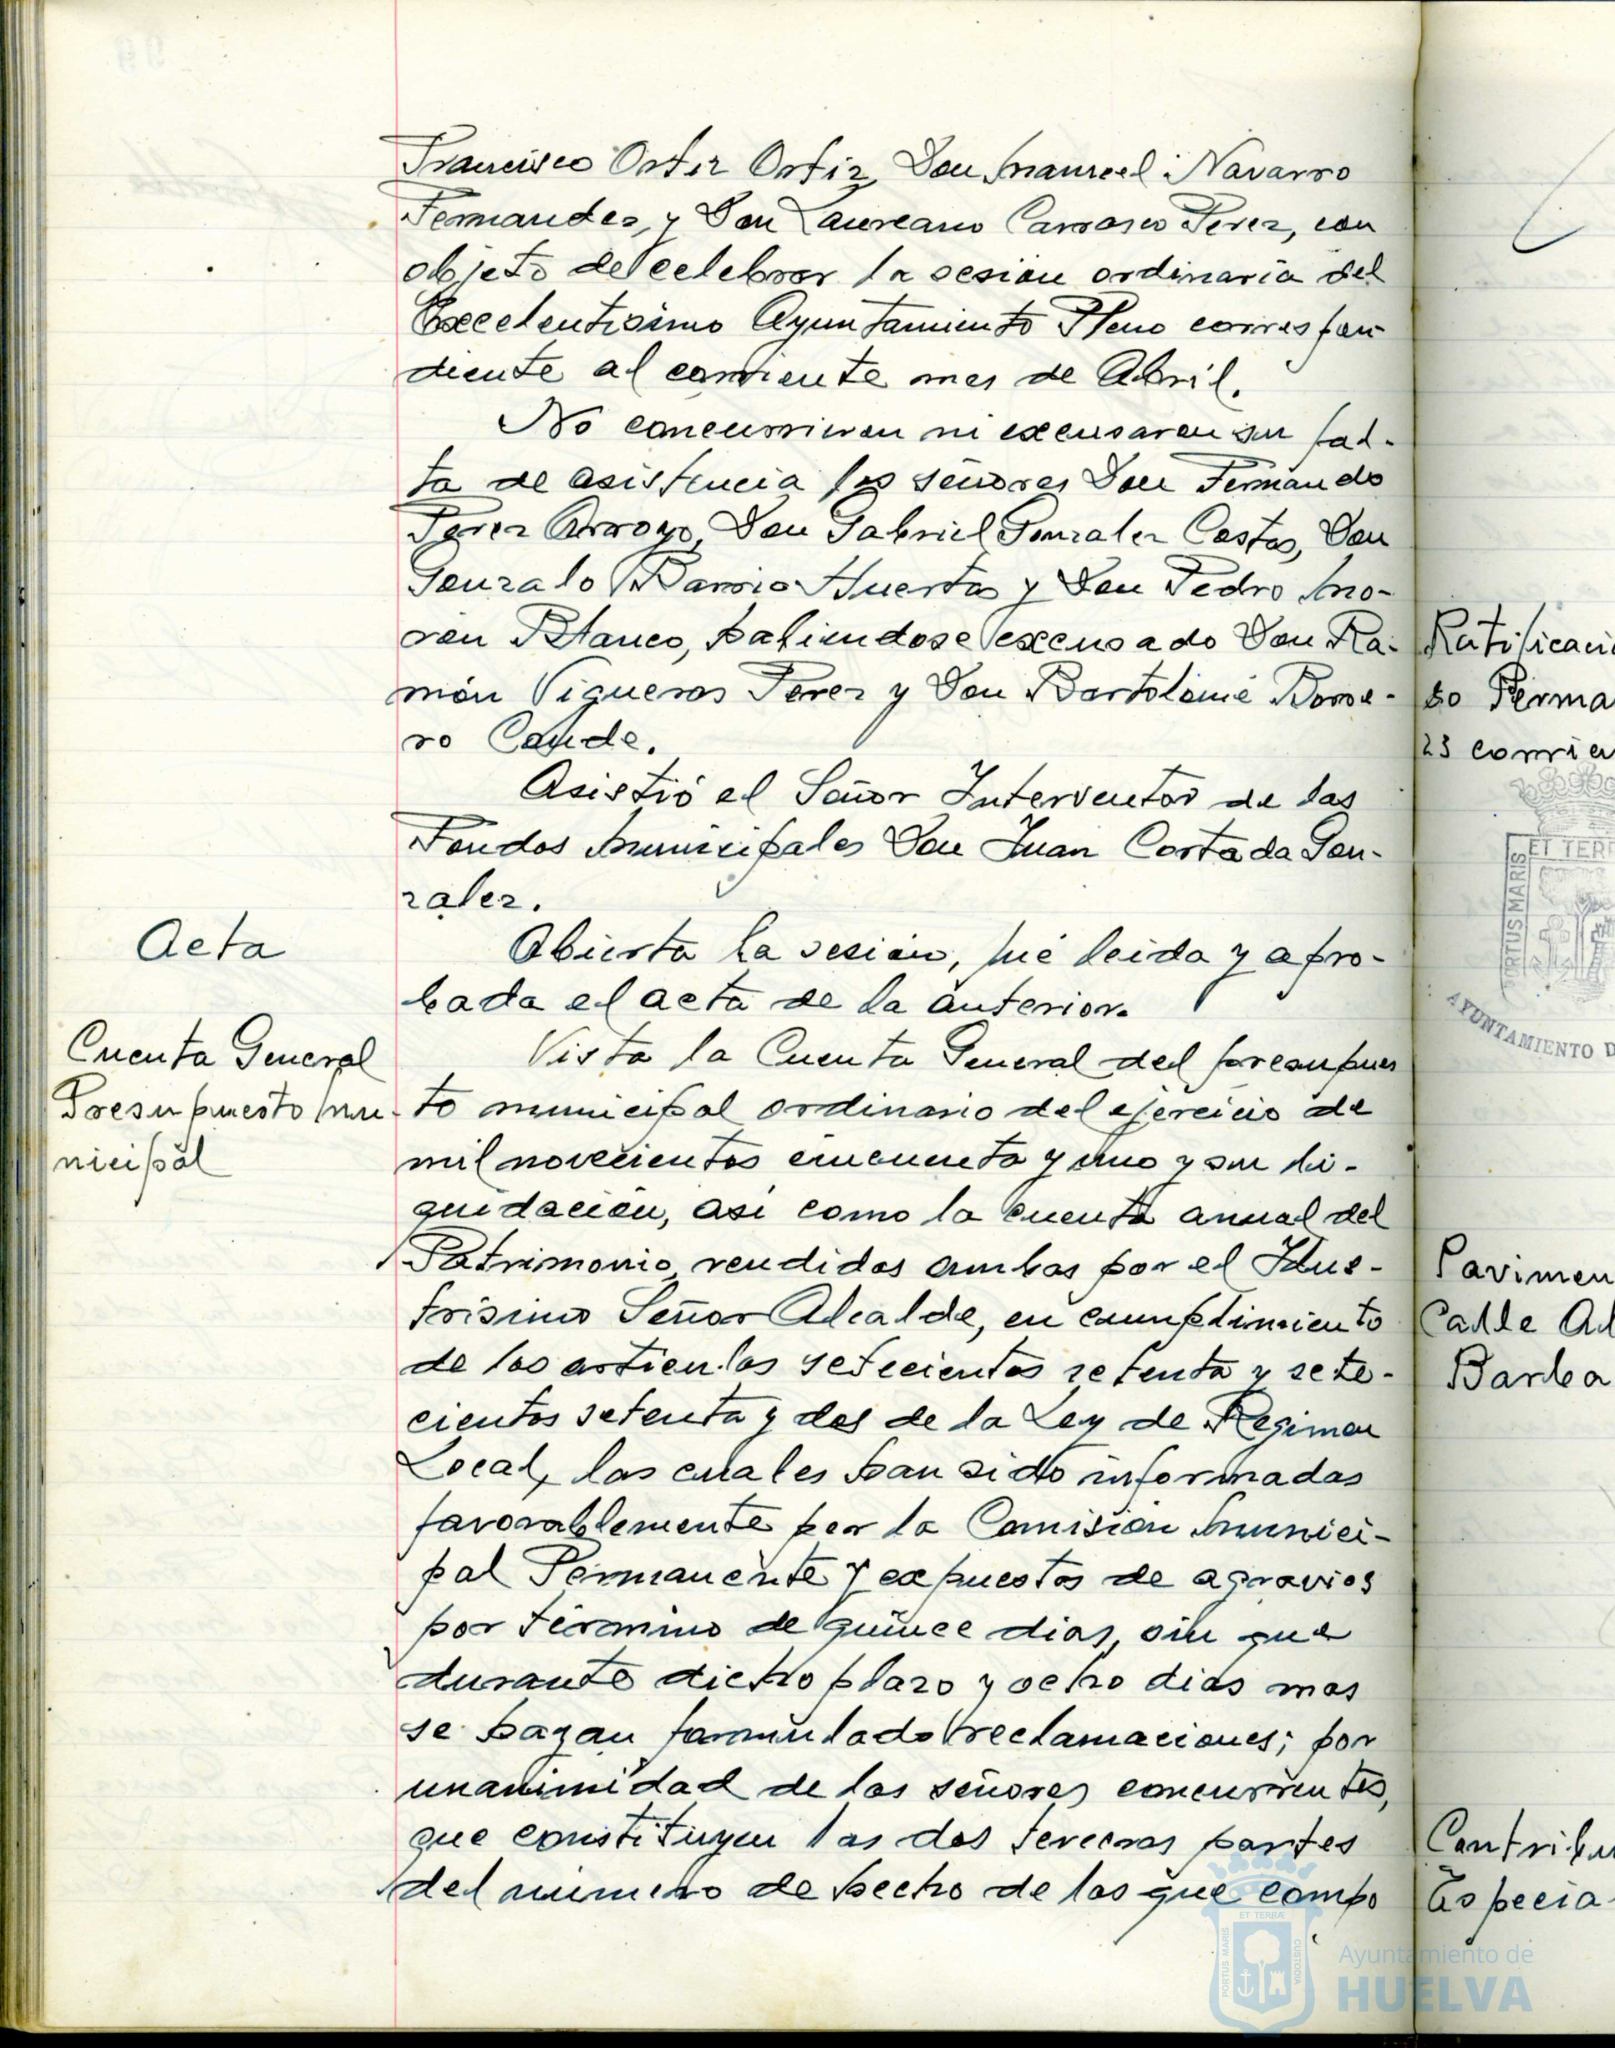 Francisco Ortiz Ortiz, Don Manuel Navarro
Fernandez, y Don Laureano Carrasco Perez, con
objeto de celebrar la sesión ordinaria del
Excelentisimo Ayuntamiento Pleno correspon-
diente al corriente mes de Abril.
No concurrieron ni excusaron su fal-
ta de asistencia los señores Don Fernando
Perez Arroyo, Don Gabriel Gonzalez Costas, Don
Gonzalo Barrio Huertas y Don Pedro Mo-
ron Blanco, habiendose excusado Don Ra-
món Vigueras Perez y Don Bartolomé Borre-
ro Conde.
Asistió el Señor Interventor de los
Fondos Municipales Don Juan Cortada Gon-
zalez.
Acta
Abierta la sesión, fué leida y apro-
bada el acta de la anterior.
Cuenta General
Presupuesto Mu-
nicipal
Vista la Cuenta General del presupues
to municipal ordinario del ejercicio de
mil novecientos cincuenta y uno y su li-
quidación, asi como la cuenta anual del
Patrimonio, rendidas ambas por el Ilus-
trisimo Señor Alcalde, en cumplimiento
de los articulos setecientos setenta y sete-
cientos setenta y dos de la Ley de Regimen
Local, las cuales han sido informadas
favorablemente por la Comisión Munici-
pal Permanente y expuestas de agravios
por término de quince dias, sin que
durante dicho plazo y ocho dias mas
se hayan formulado reclamaciones; por
unanimidad de los señores concurrentes,
que constituyen las dos terceras partes
del número de hecho de los que compo
Ratificaci
so Perma
23 corrien
ET TERR
PORTUS MARIS
AYUNTAMIENTO D
Pavimen
Calle Ad
Barba
Contribu
Especia
PORTUS MARIS
ET TERRÆ
CUSTODIA
Ayuntamiento de
HUELVA